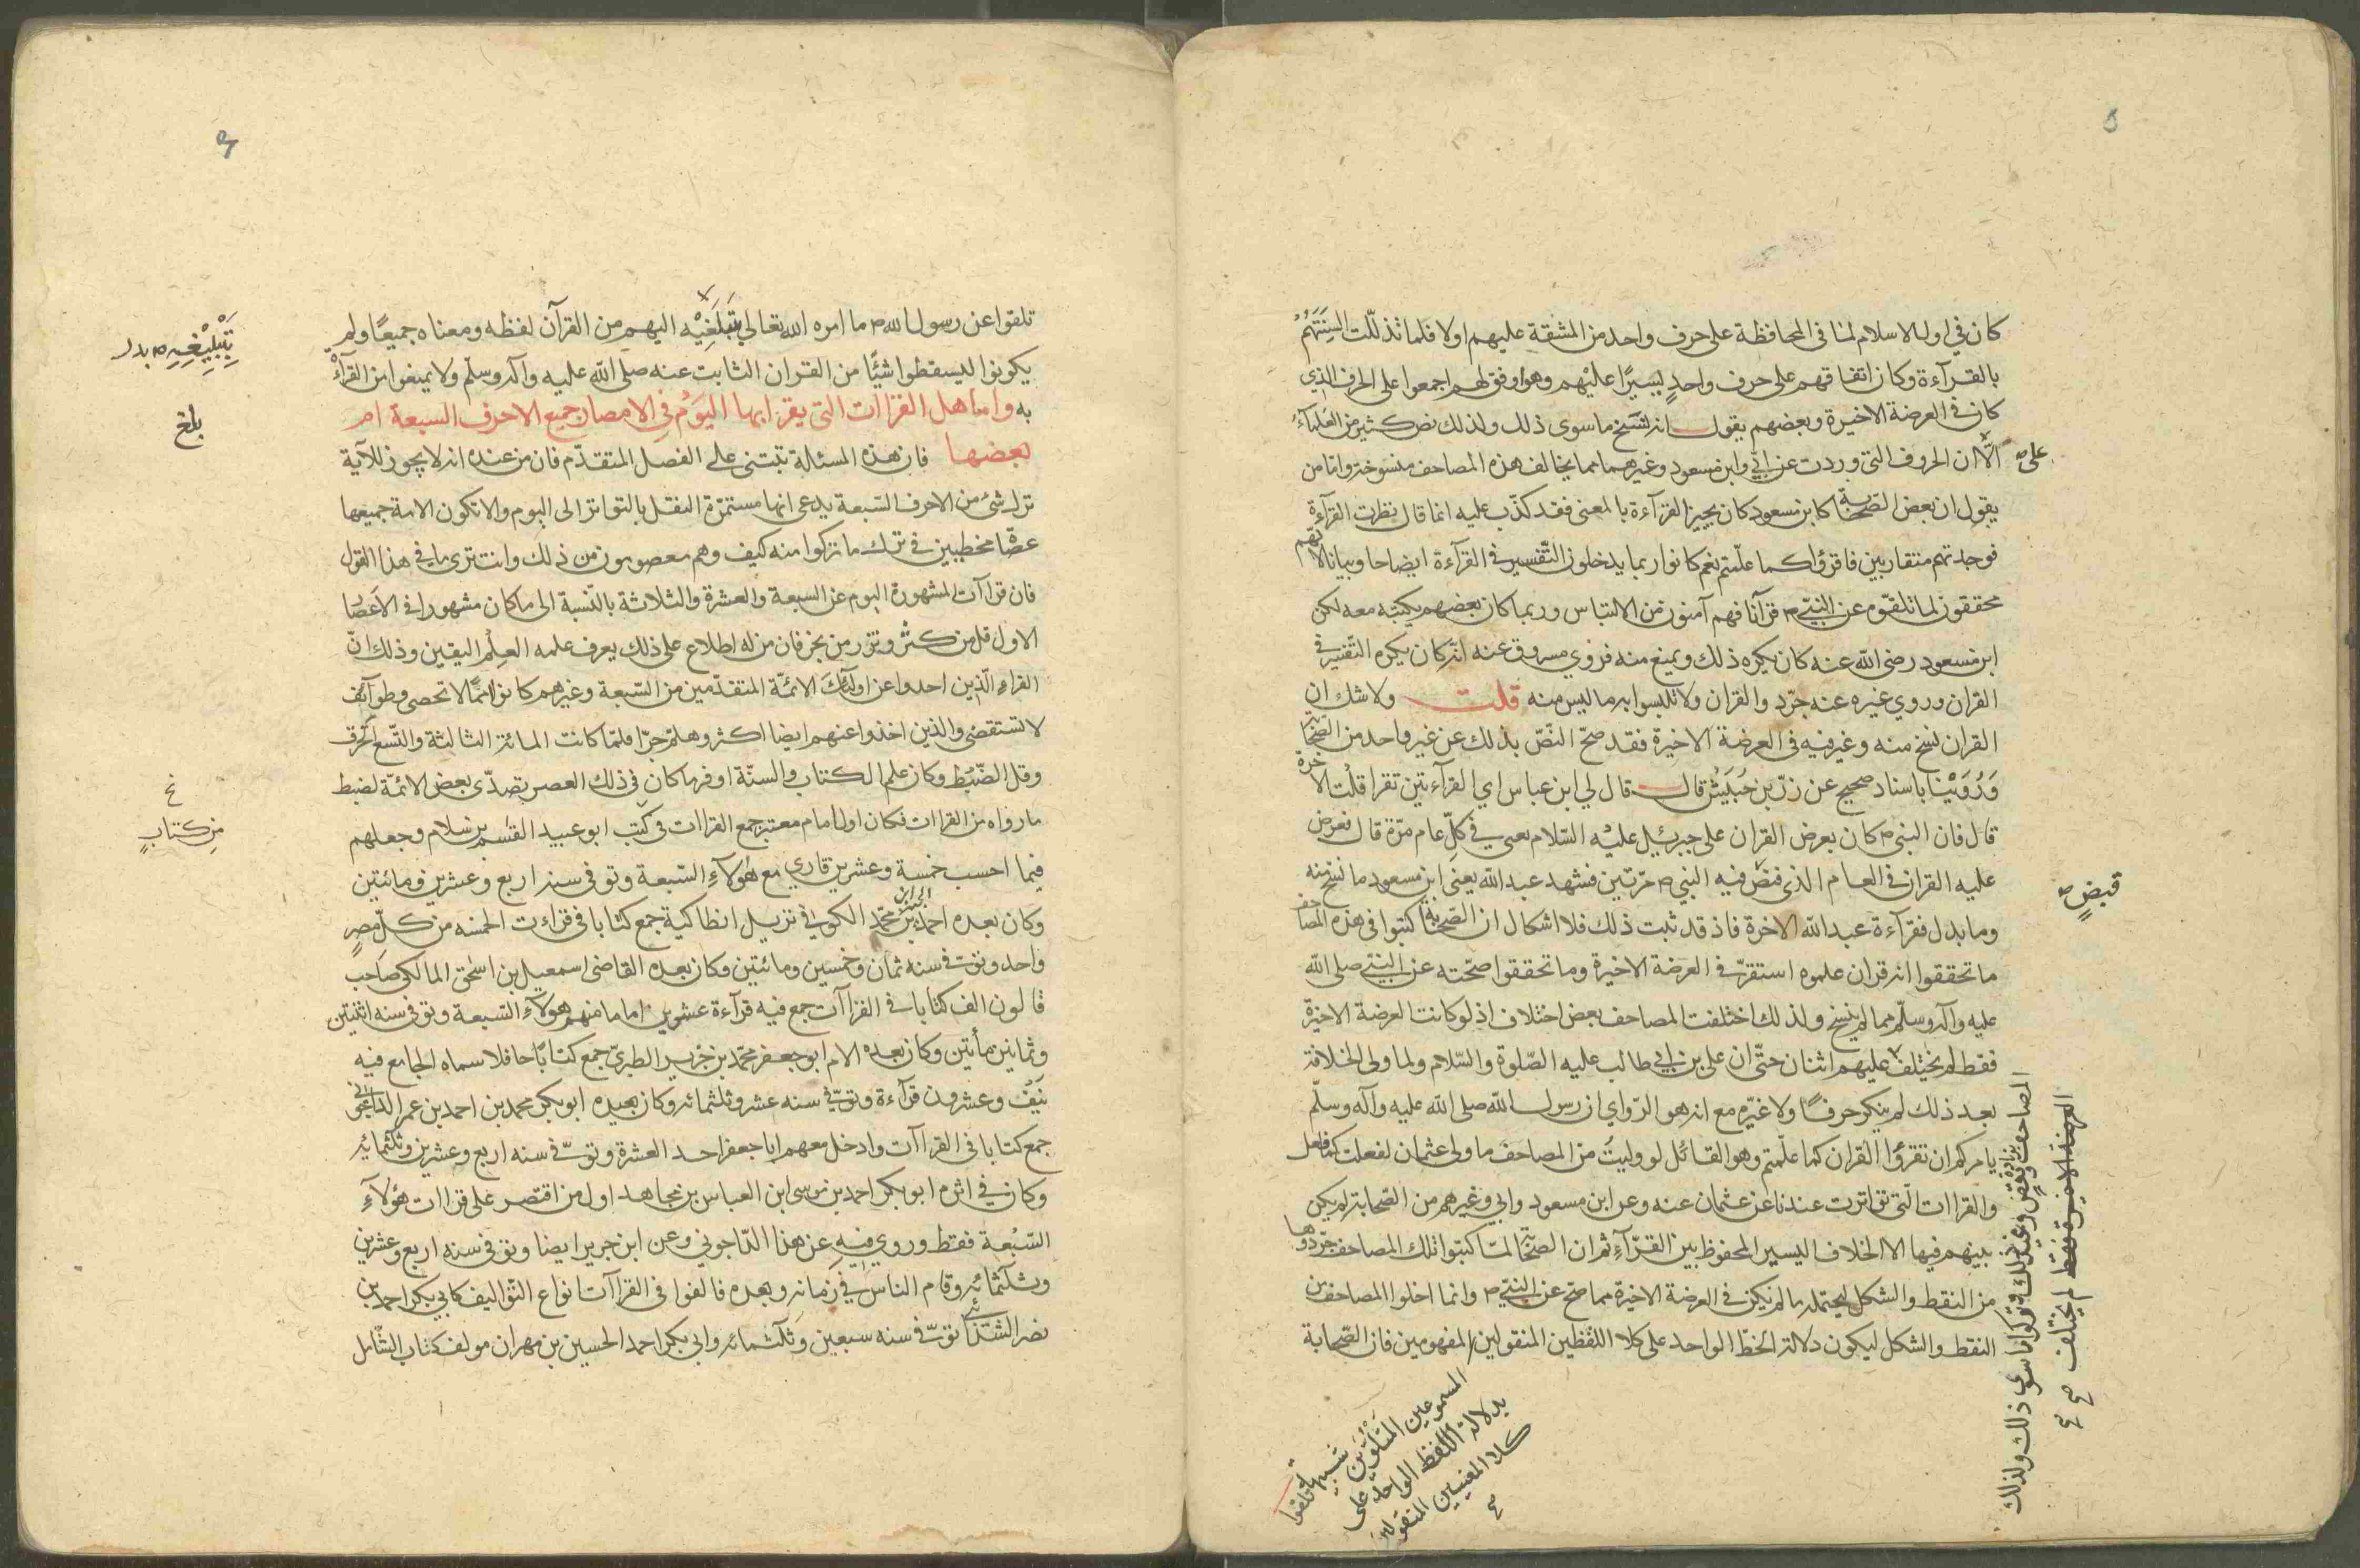 كان في اول الاسلام لما في المحافظة على حرف واحد من المشقة عليهم اولا فلما تذللت السنتهم
بالقرآءة وكان اتفاقهم على حرف واحدٍ يسيرًا عليْهم وهو اوفق لهم اجمعوا على الحرف الذي
كان في العرضة الاخيرة وبعضهم يقول انه نسخ ما سوى ذلك ولذلك نص كثير من العلمآء
على
الّا ان الحروف التي وردت عن ابيّ وابن مسعود وغيرهما مما يخالف هذه المصاحف منسوخة واما من
يقول ان بعض الصّحابة كابن مسعود كان يجيز القرآءة بالمعنى فقد كذب عليه انما قال نظرت القرآءة
فوجدتهم متقاربين فاقرؤا كما علّمتم نعم كانوا ربما يدخلون التّفسير في القرآءة ايضاحا وبيانا لانهم
محققون لما تلقّوه عن النبيّ ص قرآنا فهم آمنون من الالتباس وربما كان بعضهم يكتبه معه لكن
ابن مسعود رضى اللّه عنه كان يكره ذلك ويمنع منه فروي مسروق عنه انّه كان يكره التّفسير في
القران وروي غيره عنه جرّدوا القران ولا تلبسوا به ما ليس منه قلت ولا شك ان
القران نسخ منه وغير فيه في العرضة الاخيرة فقد صحّ النّصّ بذلك عن غير واحد من الصّحابة
وَرُوَيْنَا باسناد صحيح عن زرّ بن حُبَيْش قال قال لي ابن عباس اي القرآءتين تقرا قلت الاخرة
قال فان النبي ص كان يعرض القران على جبرئيل عليْه السّلام يعني في كلّ عام مرّة قال فعرض
عليه القران في العام الذي قبض فيه النبي ص مرّتين فشهد عبد اللّه يعني ابن مسعود ما نسخ منه
قبضٍ ص
وما بدل فقرآءة عبد اللّه الاخرة فاذ قد ثبت ذلك فلا اشكال ان الصّحابة كتبوا في هذه المصاحف
ما تحققوا انه قران علموه استقرّ في العرضة الاخيرة وما تحققوا صحّته عن النبيّ صلى اللّه
عليه وآله وسلّم مما لم ينسخ ولذلك اختلفت المصاحف بعض اختلاف اذ لو كانت العرضة الاخيرة
فقط لم يختلف عليهم اثنان حتّى ان على بن ابي طالب عليه الصّلوة والسّلام ولما ولى الخلافة
بعد ذلك لم ينكر حرفًا ولا غيّره مع انه هو الرّواي ان رسول اللّه صلى اللّه عليه وآله وسلّم
يامركم ان تقرؤا القران كما علّمتم وهو القائل لو وليت من المصاحف ما ولى عثمان لفعلت كما فعل
والقراات الّتي تواترت عندنا عن عثمان عنه وعن ابن مسعود وابي وغيرهم من الصّحابة لم يكن
بينهم فيها الا الخلاف اليسير المحفوظ بين القرّآءِ ثم ان الصّحابة لمّا كتبوا تلك المصاحف جرّدوها
من النقط والشكل ليحتمله ما لم يكن في العرضة الاخيرة مما صح عن النبيّ ص وانما اخلوا المصاحف من
النقط والشكل ليكون دلالة الخطّ الواحد على كلا اللّفظين المنقولين المفهومين فان الصّحابة
المصاحف بزيادة ونقصٍ وغير ذلك وتركوا ما سوى ذلك ولذلك
العرضة الاخيرة فقط لم يختلف صح
المسموعين المتلوّين شبيهة
بدلالة اللّفظ الواحد على
كلا المعنيين المنقولين
صح
تلقوا
تلقوا عن رسول اللّه ص ما امره اللّه تعالى بتبلغيه اليهم من القرآن لفظه ومعناه جميعًا ولم
بِتَبْلِيْغِهِ ص بدل
يكونوا ليسقطوا شيًا من القران الثابت عنه صلى اللّه عليه وآله وسلّم ولا يمنعوا من القرآءة
به واما هل القراات التي يقرا بها اليَوْم في الامصار جميع الاحرف السبعة ام
بلغ
بعضها فان هذه المسئلة تبتنى على الفصل المتقدّم فان من عنده انه لا يجوز للآية
ترك شئ من الاحرف السّبعة يدعى انها مستمرّة النقل بالتواتر الى اليوم والا تكون الامة جميعها
عصًا مخطيين في ترك ما تركوا منه كيف وهم معصومون من ذلك وانت ترى ما في هذا القول
فان قراآت المشهورة اليوم عن السبعة والعشرة والثلاثة بالنّسبة الى ما كان مشهورا في الاعصار
الاول قل من كثر ونزر من بحر فان من له اطلاع على ذلك يعرف علمه العِلْم اليقين وذلك انّ
القراء الّذين اخدوا عن اولئك الائمّة المتقدّمين من السّبعة وغيرهم كانوا امّمًا لا تحصى وطوآئف
لا تستقصى والذين اخذوا عنهم ايضا اكثر وهلمّ جرّا فلمّا كانت المائة الثالثة واتّسع الخرق
وقل الضّبْط وكان علم الكتاب والسنّة اوفر ما كان في ذلك العصر تصدّى بعض الائمّة لضبط
ما رواه من القراات فكان اول امام معتبر جمع القراات في كتب ابو عبيد القسم بن سلام وجعلهم
من كتابٍ
فيما احسب خمسة وعشرين قاري مع هٰولآءِ السّبعة وتوفى سنة اربع وعشرين ومائتين
وكان بعده احمد بن جبير بن محمّد الكوفي نزيل انطاكية جمع كتابا في قراءت الخمسه من كلّ مصرٍ
واحد وتوفى سنة ثمان وخمسين ومائتين وكان بعده القاضى اسمعيل بن اسحق المالكى صاحب
قالون الف كتابا في القراآت جمع فيه قرآءة عشرين اماما منهم هولآءِ السّبعة وتوفى سنه اثنتين
وثمانين مأتين وكان بعده الام ابو جعفر محمّد بن جرير الطبرىّ جمع كتابًا حافلا سماه الجامع فيه
نَيْف وعشرون قرآءة وتوفى سنه عشر وثلثمائه وكان بعيده ابو بكر محمد بن احمد بن عمر الداجونى
جمع كتابا في القراآت وادخل معهم ابا جعفر احد العشرة وتوفى سنه اربع وعشرين وثلثمائه
وكان في اثره ابو بكر احمد بن موسى ابن العباس بن مجاهد اول من اقتصر على قراات هٰؤلآءِ
السّبْعة فقط وروي فيهِ عن هذا الدّاجوني وعن ابن جرير ايضا وتوفى سنه اربع وعشرين
وثلثمائه وقام الناس في زمانه وبعده فالفوا في القراآت انواع التّواليف كابي بكر احمد بن
نصر الشذائي توفى سنه سبعين وَثلثمائه وابي بكر احمد الحسين بن مهران مولف كتاب الشّامل